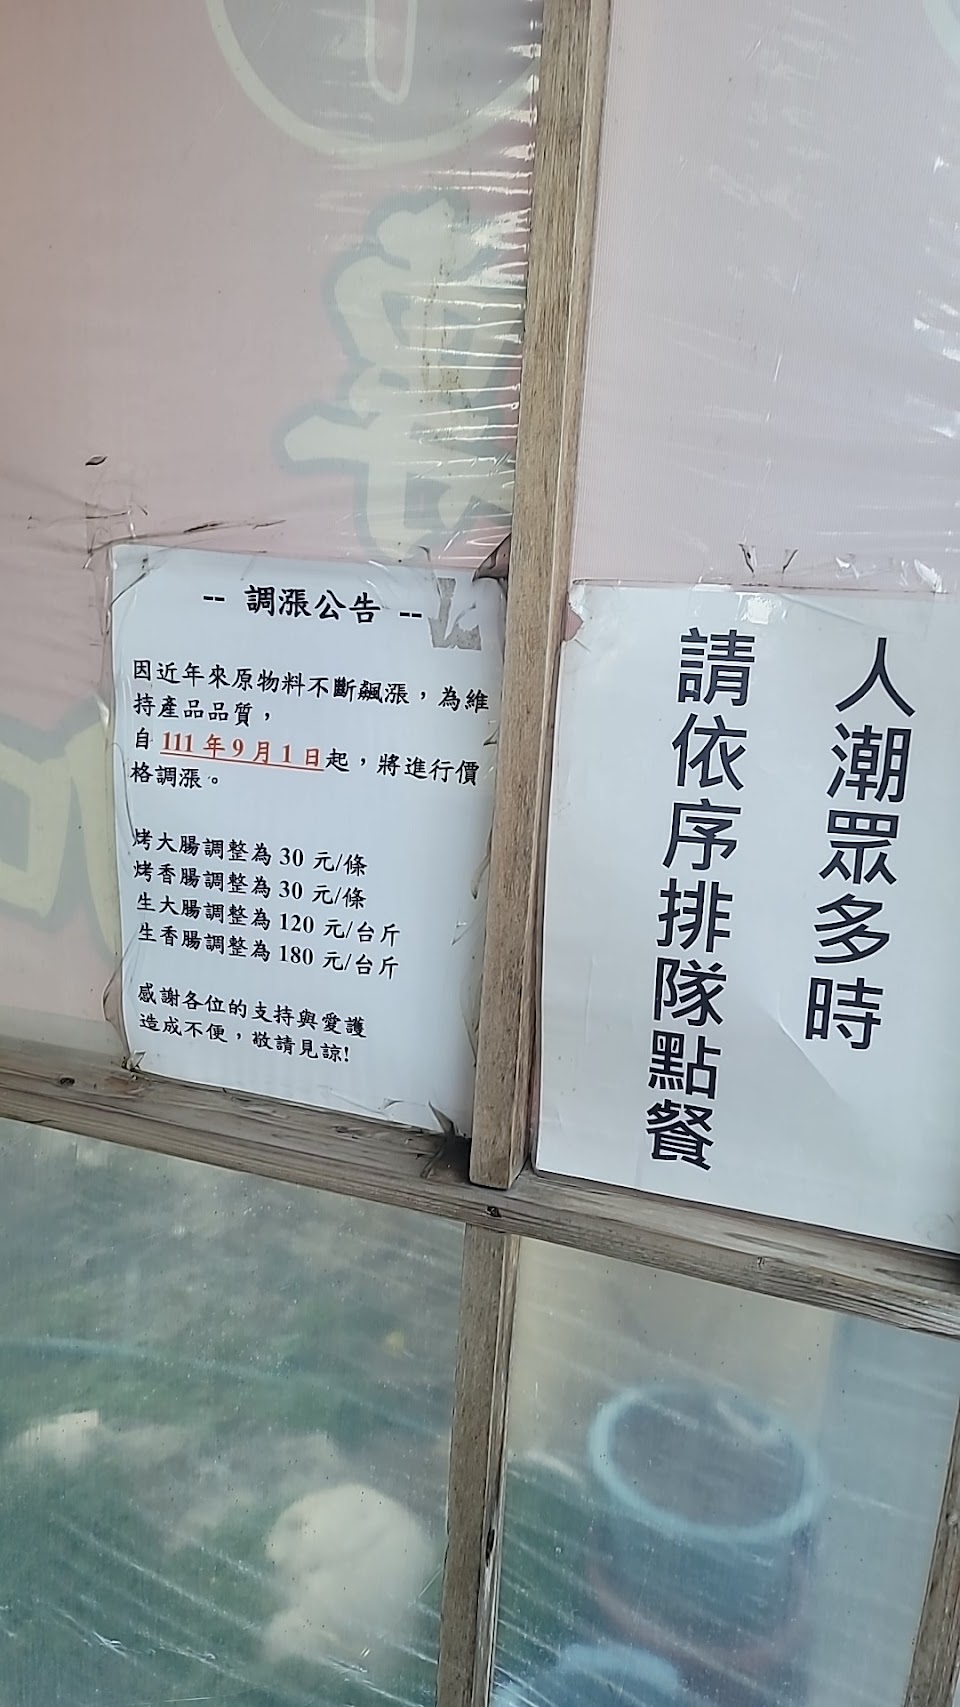 -- 調漲公告 --
因近年來原物料不斷飆漲，為維
持產品品質，
自 111 年 9 月 1 日起，將進行價
格調漲。
烤大腸調整為 30 元/條
烤香腸調整為 30 元/條
生大腸調整為 120 元/台斤
生香腸調整為 180 元/台斤
感謝各位的支持與愛護
造成不便，敬請見諒!
人潮眾多時
請依序排隊點餐